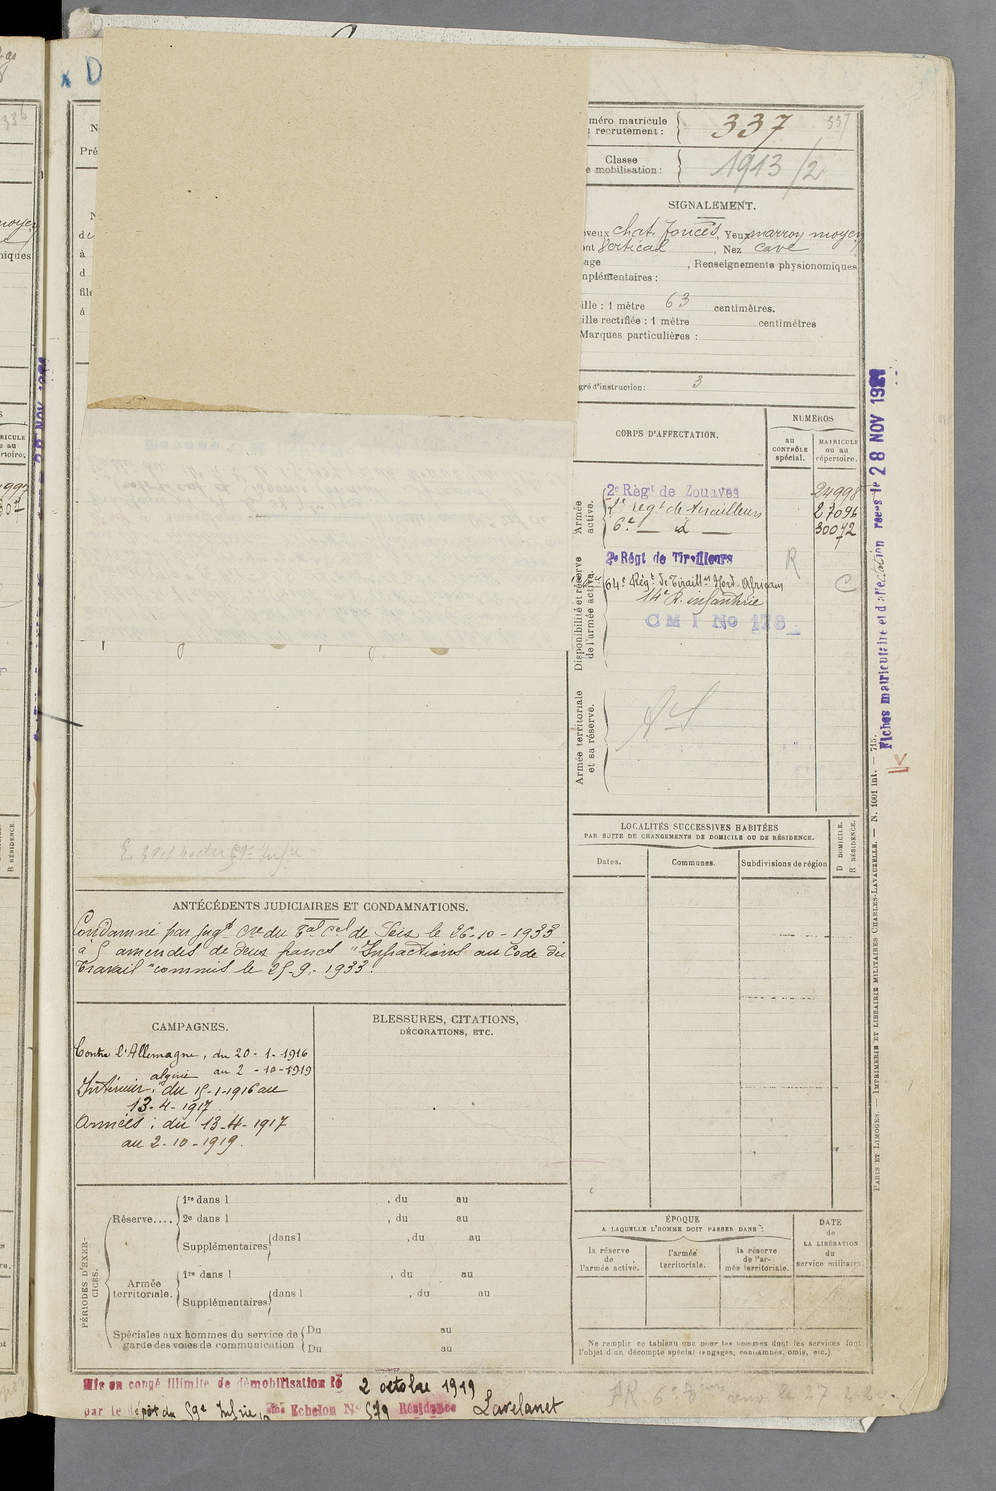 D
méro matricule
recrutement :
337
337
Classe
mobilisation :
1913/2
SIGNALEMENT.
veux chat. foncés, Yeux marron moyen
Vertical, Nez cave
age , Renseignements physionomiques
mplémentaires :
ille : 1 mètre 63 centimètres.
ille rectifiée : 1 mètre centimètres
Marques particulières :
gré d'instruction : 3
CORPS D'AFFECTATION.
NUMÉROS
au
CONTRÔLE
spécial.
MATRICULE
ou au
répertoire.
Armée
active.
2e Régt de Zouaves 24998
2e régt de tirailleurs 27096
6e — d — 30072
Disponibilité et réserve
de l'armée active.
2e Régt de Tirailleurs
R
64e Régt de Tiraillrs Nord-Africain
C
14e R. infanterie
C M I No 178
Armée territoriale
et sa réserve.
Fiches matriculaire et d'affectation reçues le 28 NOV 1921
V
LOCALITÉS SUCCESSIVES HABITÉES
PAR SUITE DE CHANGEMENTS DE DOMICILE OU DE RÉSIDENCE.
Dates.
Communes.
Subdivisions de région
D DOMICILE.
R RÉSIDENCE.
ANTÉCÉDENTS JUDICIAIRES ET CONDAMNATIONS.
Condamné par jugt cre du Tal cel de le 26-10-1933
à 5 amendes de deux francs "Infractions au Code du
Travail" commis le 25-9-1933.
CAMPAGNES.
Contre l'Allemagne, du 20-1-1916
au 2-10-1919
Intérieur : algérie du 15-1-1916 au
13-4-1917
Armées : du 13-4-1917
au 2-10-1919.
BLESSURES, CITATIONS,
DÉCORATIONS, ETC.
PÉRIODES D'EXER-
CICES.
Réserve....
1re dans l , du au
2e dans l , du au
Supplémentaires dans l , du au
Armée
territoriale.
1re dans l , du au
Supplémentaires dans l , du au
Spéciales aux hommes du service de
garde des voies de communication
Du au
Du au
ÉPOQUE
A LAQUELLE L'HOMME DOIT PASSER DANS :
la réserve
de
l'armée active.
l'armée
territoriale.
la réserve
de l'ar-
mée territoriale.
DATE
de
LA LIBÉRATION
du
service militaire.
Ne remplir ce tableau que pour les hommes dont les services font
l'objet d'un décompte spécial (engagés, condamnés, omis, etc.).
PARIS ET LIMOGES. — IMPRIMERIE ET LIBRAIRIE MILITAIRES CHARLES-LAVAUZELLE. — N. 1001 int. — 715.
Mis en congé illimité de démobilisation le 2 octobre 1919
par le dépôt du 59e Infrie Echelon No 579 Résidence Lavelanet